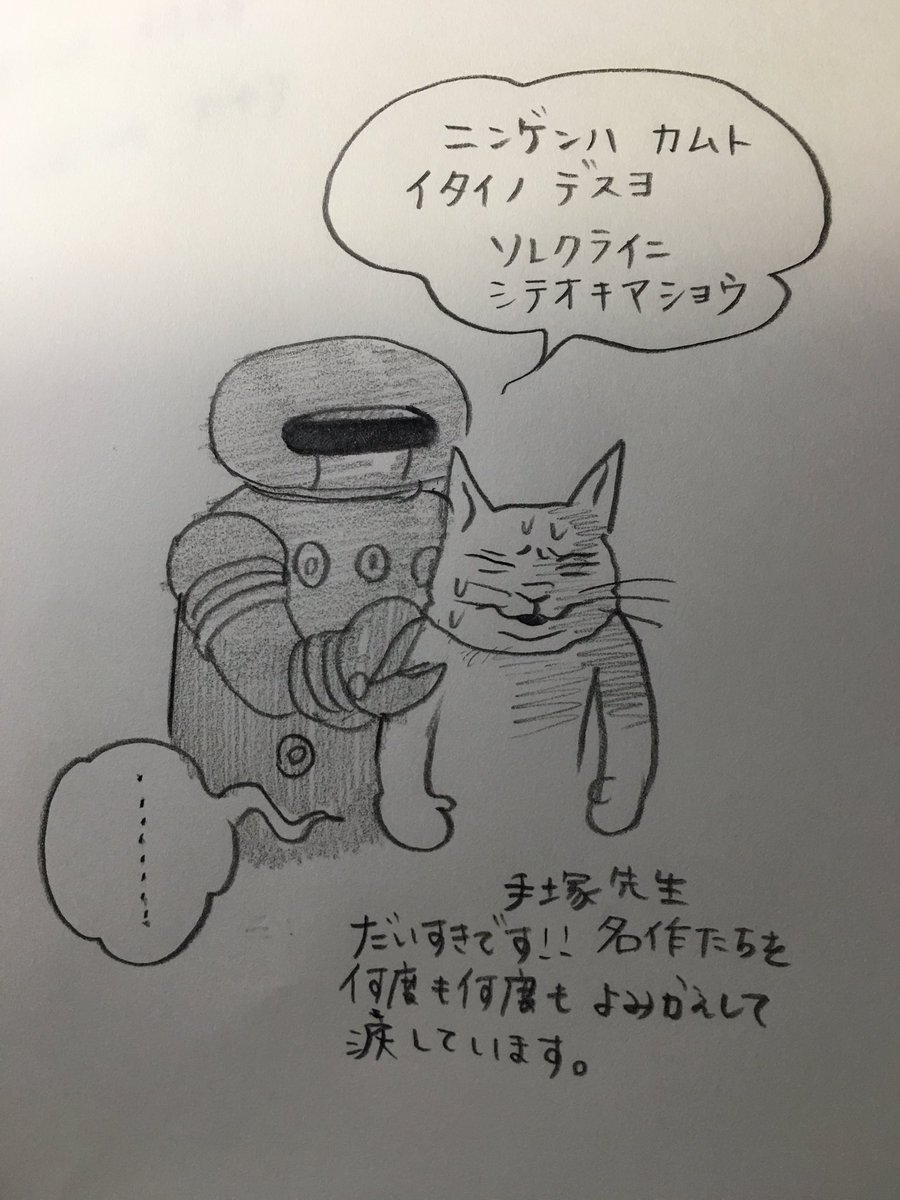 ニンゲンハ カムト
イタイノ デスヨ
ソレクライニ
シテオキマショウ
………
手塚先生
だいすきです!! 名作たちを
何度も何度も よみかえして
涙しています。